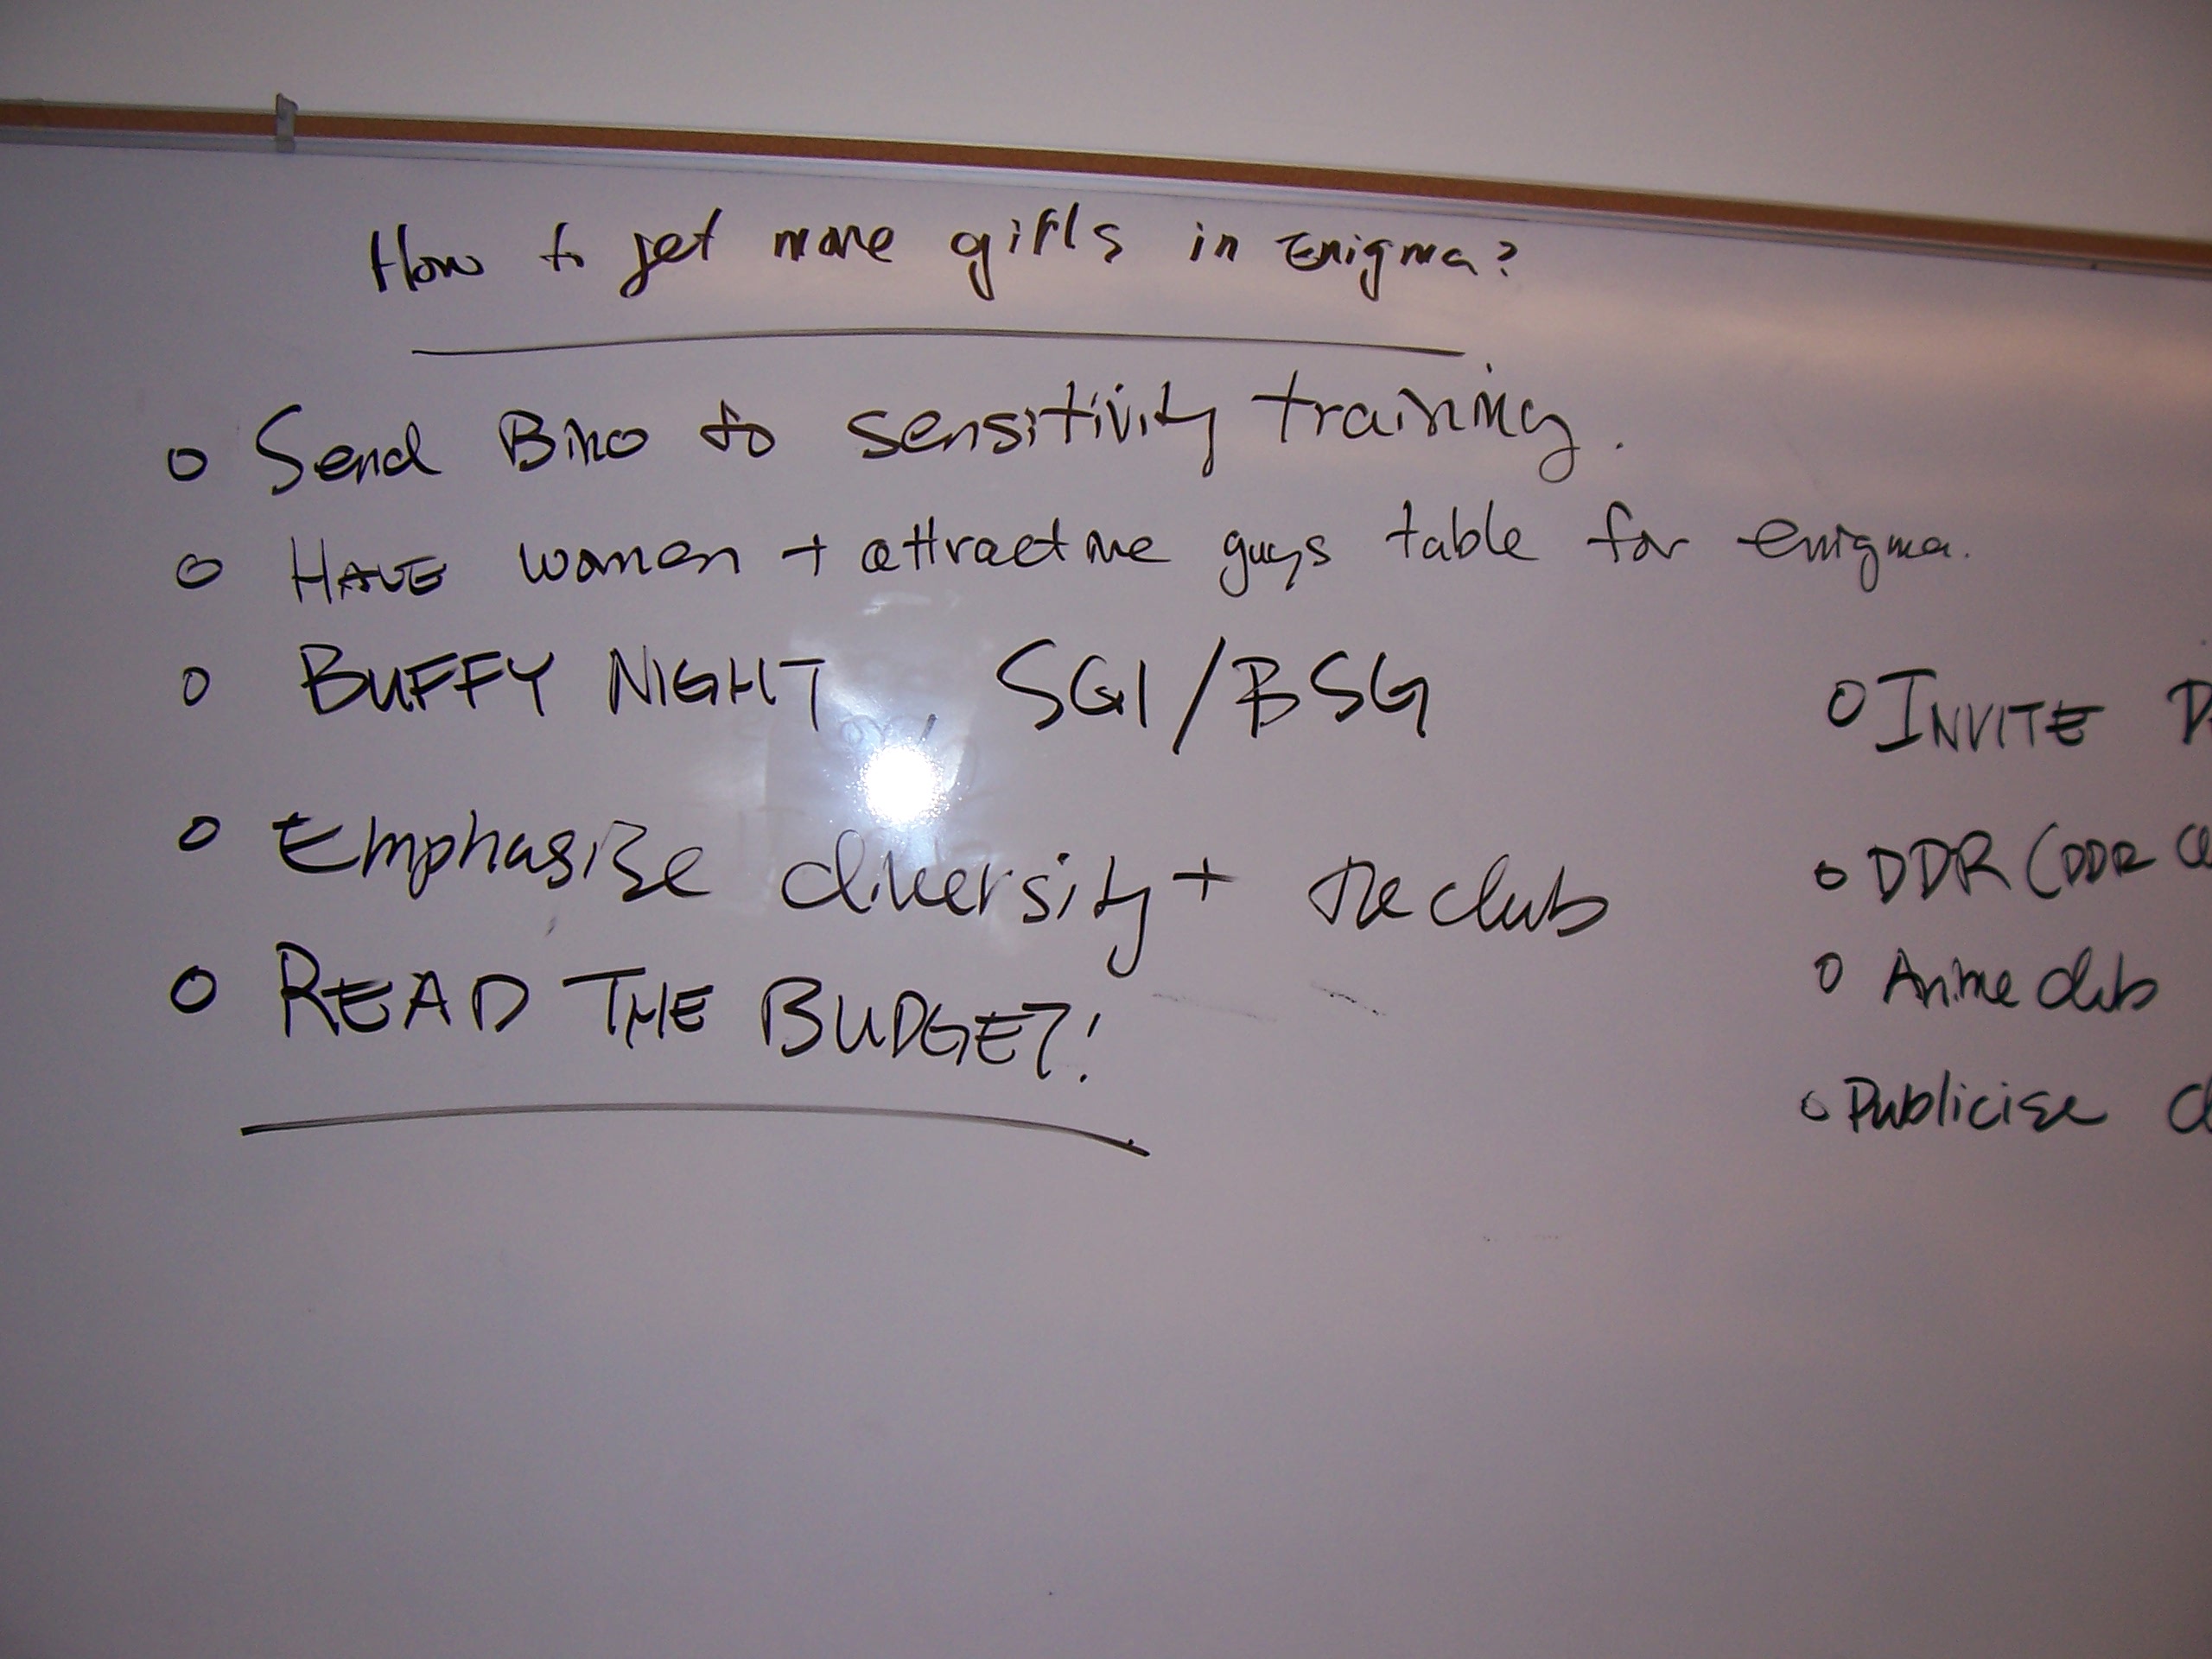 How to get more girls in Enigma?
o Send Bino to sensitivity training.
o HAVE women + attractive guys table for enigma.
o BUFFY NIGHT, SG1/BSG
o Emphasise diversity + the club
o READ THE BUDGET!
o INVITE
o DDR (DDR
o Anime club
o Publicise